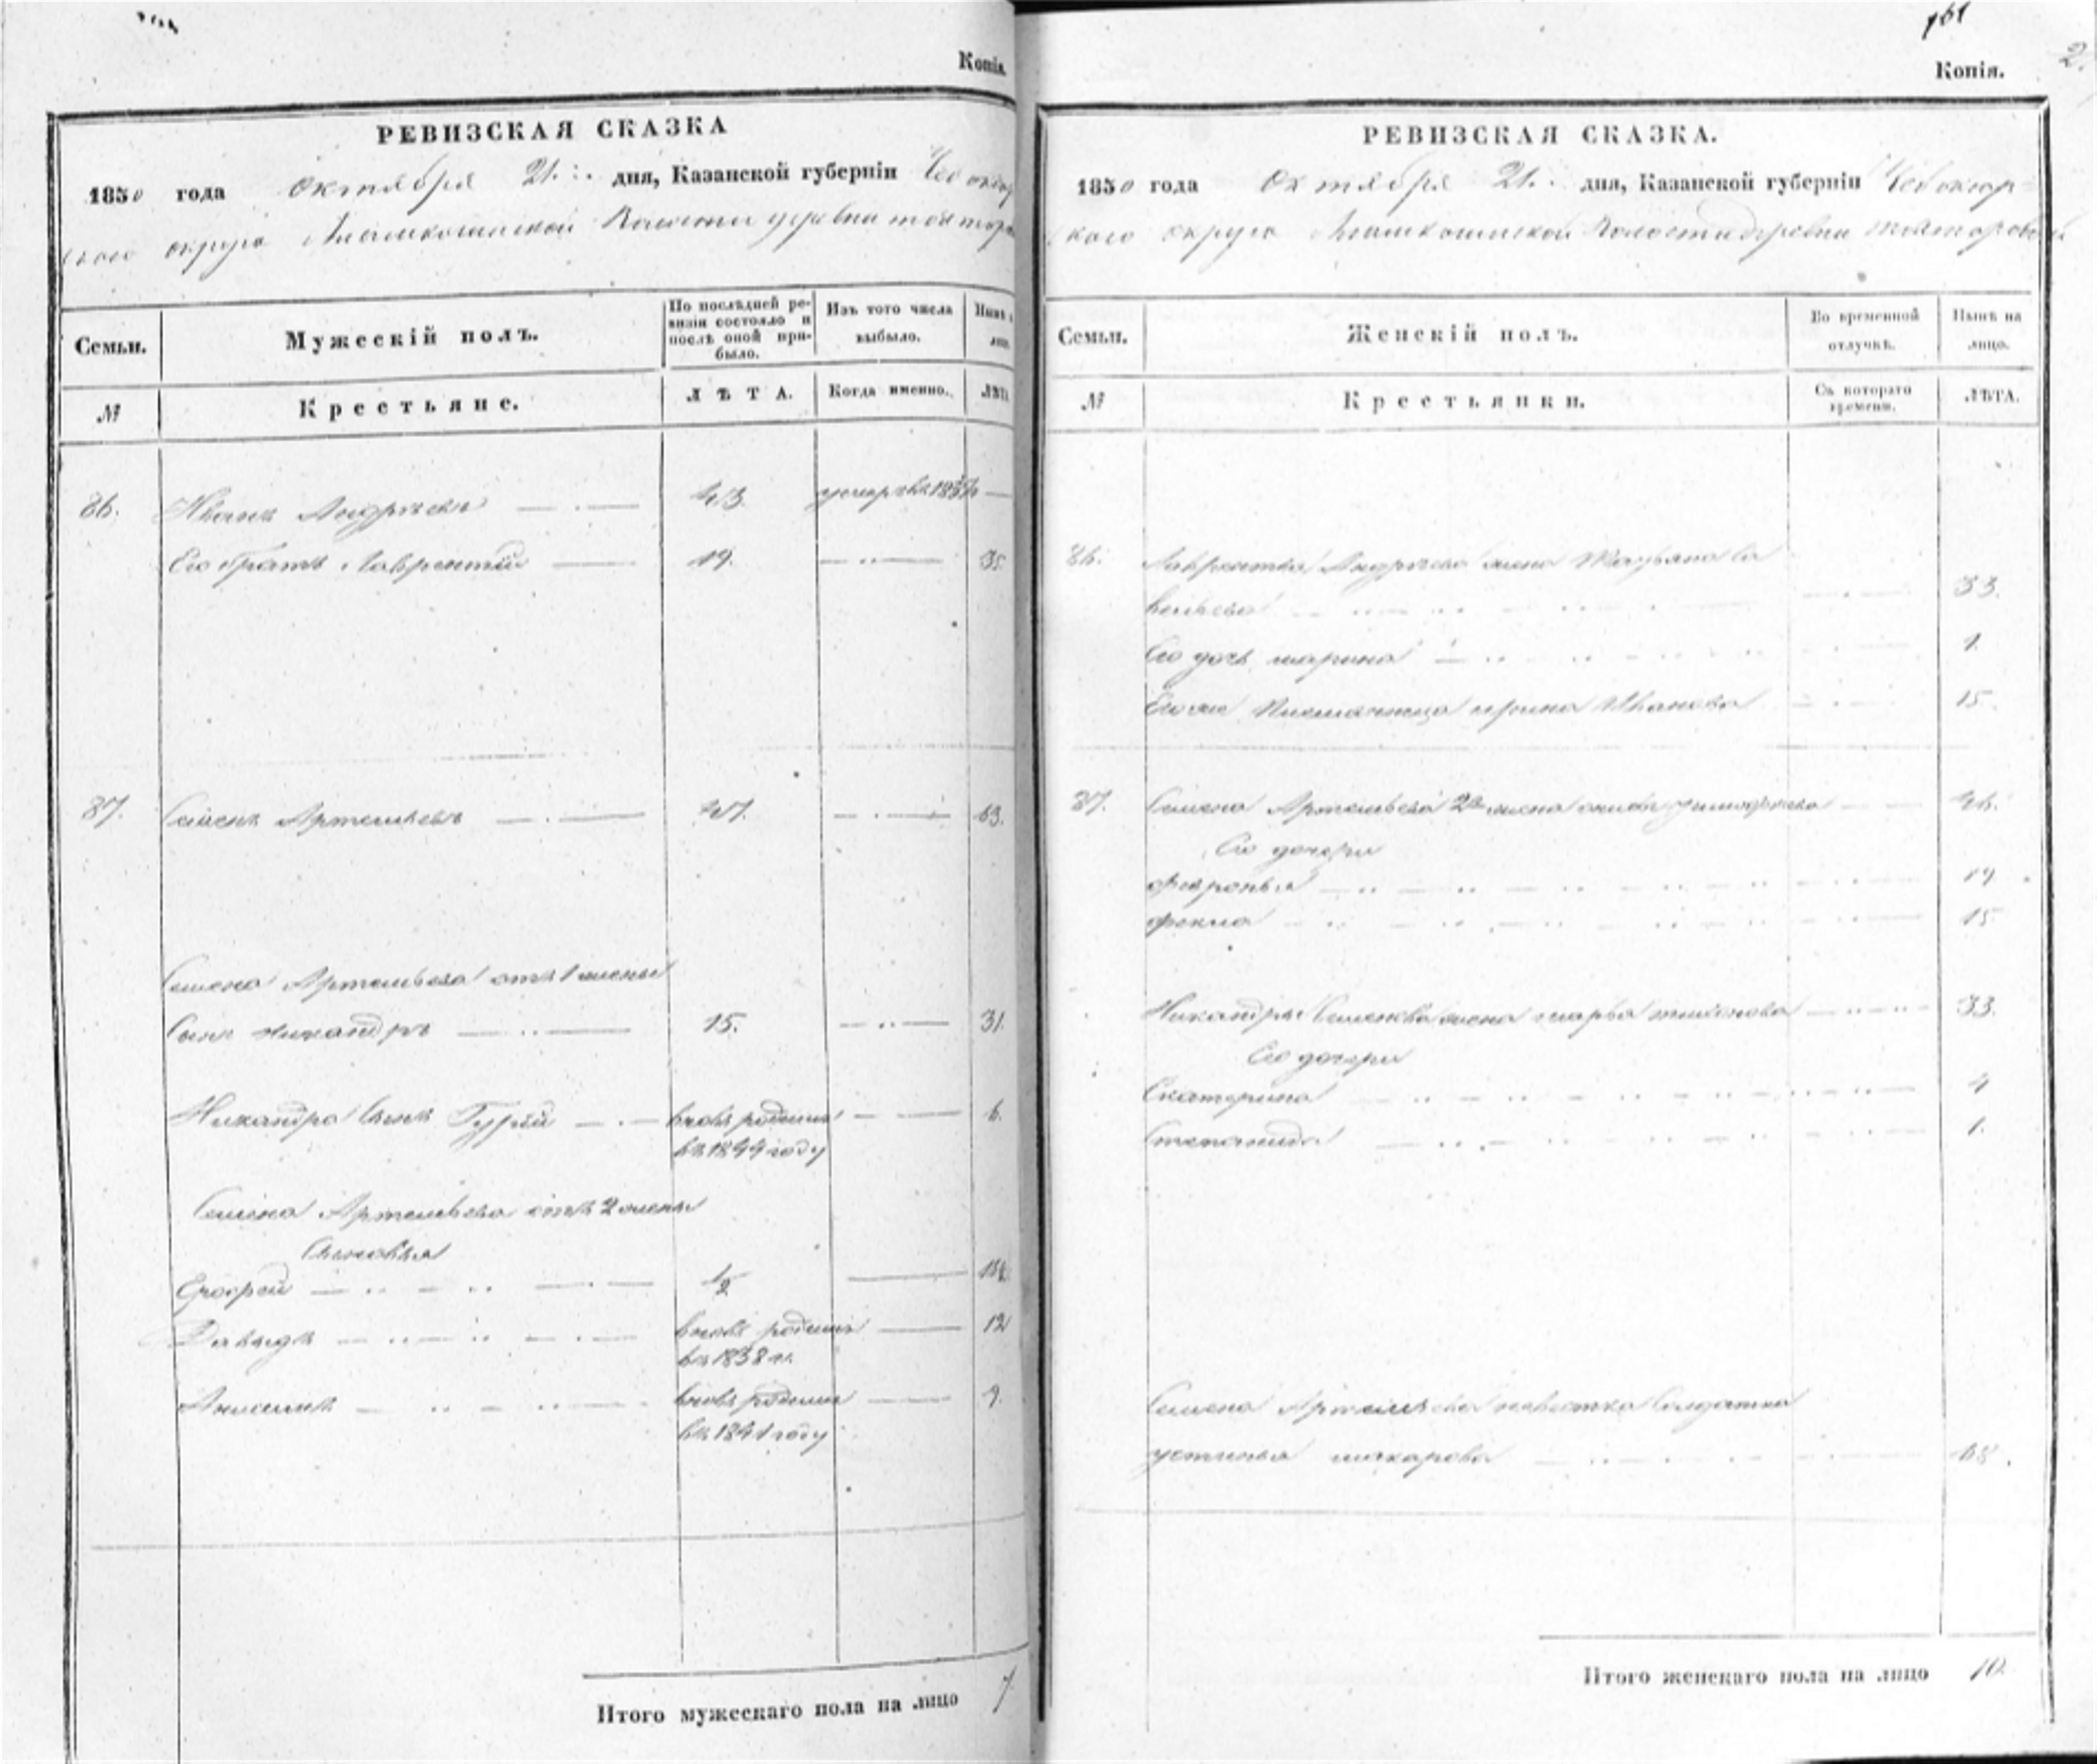 Копія.
РЕВИЗСКАЯ СКАЗКА
1850 года Октября 21. дня, Казанской губерніи Чебоксар
скаго округа Волости деревни
Семьи. Мужескій полъ. По послѣдней ре-визіи состояло и послѣ оной при-было. Изъ того числа выбыло. Нынѣ
№ Крестьяне. ЛѢТА. Когда именно. ЛѢТА
86. Иванъ Андреевъ 43. умеръ въ
Его братъ Лаврентій 19. 35
87. Семенъ Артемьевъ 47. 63.
Семена Артемьева отъ 1 жены
Сынъ Никандръ 15. 31.
Никандра сынъ Гурій вновь рожден 6.
въ 1844 году
Семена Артемьева отъ 2 жены
Сыновья
1/2
Давыдъ вновь рожден 12
въ 1838 г.
Анисимъ вновь рожден 9.
въ 1841 году
Итого мужескаго пола на лицо 7
161
Копія.
2.
РЕВИЗСКАЯ СКАЗКА.
1850 года Октября 21. дня, Казанской губерніи Чебоксар
скаго округа Волости деревни
Семьи. Женскій полъ. Во временной отлучкѣ. Нынѣ на лицо.
№ Крестьянки. Съ котораго времени. ЛѢТА.
86. Лаврентья Андреева жена Са
вельева 33.
Его дочь марина 1.
Его же Племянница ирина Иванова 15.
87. Семена Артемьева 2я жена 46.
Его дочери
февронья 19
фекла 15
Никандры Семенова жена марья тихонова 33.
Его дочери
Екатерина 4
Степанида 1.
Семена Артемьева невестка Солдатка
устинья макарова 68.
Итого женскаго пола на лицо 10.